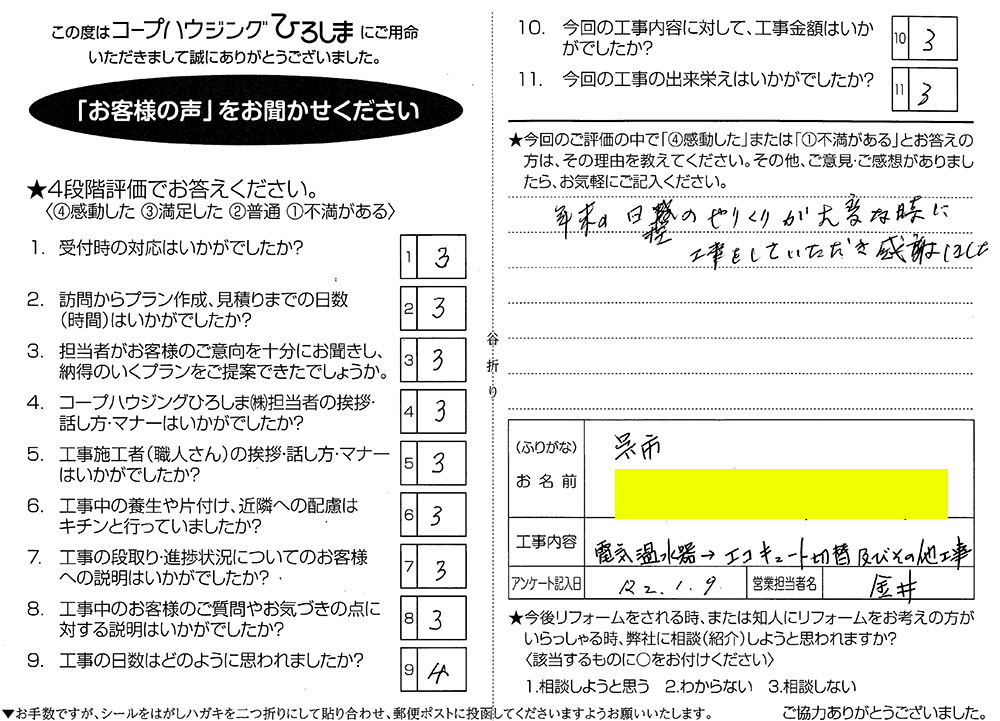 この度はコープハウジングひろしまにご用命
いただきまして誠にありがとうございました。
「お客様の声」をお聞かせください
★4段階評価でお答えください。
〈④感動した ③満足した ②普通 ①不満がある〉
1. 受付時の対応はいかがでしたか?
1 3
2. 訪問からプラン作成、見積りまでの日数
(時間)はいかがでしたか?
2 3
3. 担当者がお客様のご意向を十分にお聞きし、
納得のいくプランをご提案できたでしょうか。
3 3
4. コープハウジングひろしま㈱担当者の挨拶・
話し方・マナーはいかがでしたか?
4 3
5. 工事施工者(職人さん)の挨拶・話し方・マナー
はいかがでしたか?
5 3
6. 工事中の養生や片付け、近隣への配慮は
キチンと行っていましたか?
6 3
7. 工事の段取り・進捗状況についてのお客様
への説明はいかがでしたか?
7 3
8. 工事中のお客様のご質問やお気づきの点に
対する説明はいかがでしたか?
8 3
9. 工事の日数はどのように思われましたか?
9 4
▼お手数ですが、シールをはがしハガキを二つ折りにして貼り合わせ、郵便ポストに投函してくださいますようお願いいたします。
谷折り
10. 今回の工事内容に対して、工事金額はいか
がでしたか?
10 3
11. 今回の工事の出来栄えはいかがでしたか?
11 3
★今回のご評価の中で「④感動した」または「①不満がある」とお答えの
方は、その理由を教えてください。その他、ご意見・ご感想がありまし
たら、お気軽にご記入ください。
年末の日程のやりくりが大変な時に
工事をしていただき感謝しました
(ふりがな)
お名前
呉市
工事内容
電気温水器→エコキュート切替及びその他工事
アンケート記入日 R2.1.9.
営業担当者名 金井
★今後リフォームをされる時、または知人にリフォームをお考えの方が
いらっしゃる時、弊社に相談(紹介)しようと思われますか?
〈該当するものに○をお付けください〉
1.相談しようと思う 2.わからない 3.相談しない
ご協力ありがとうございました。